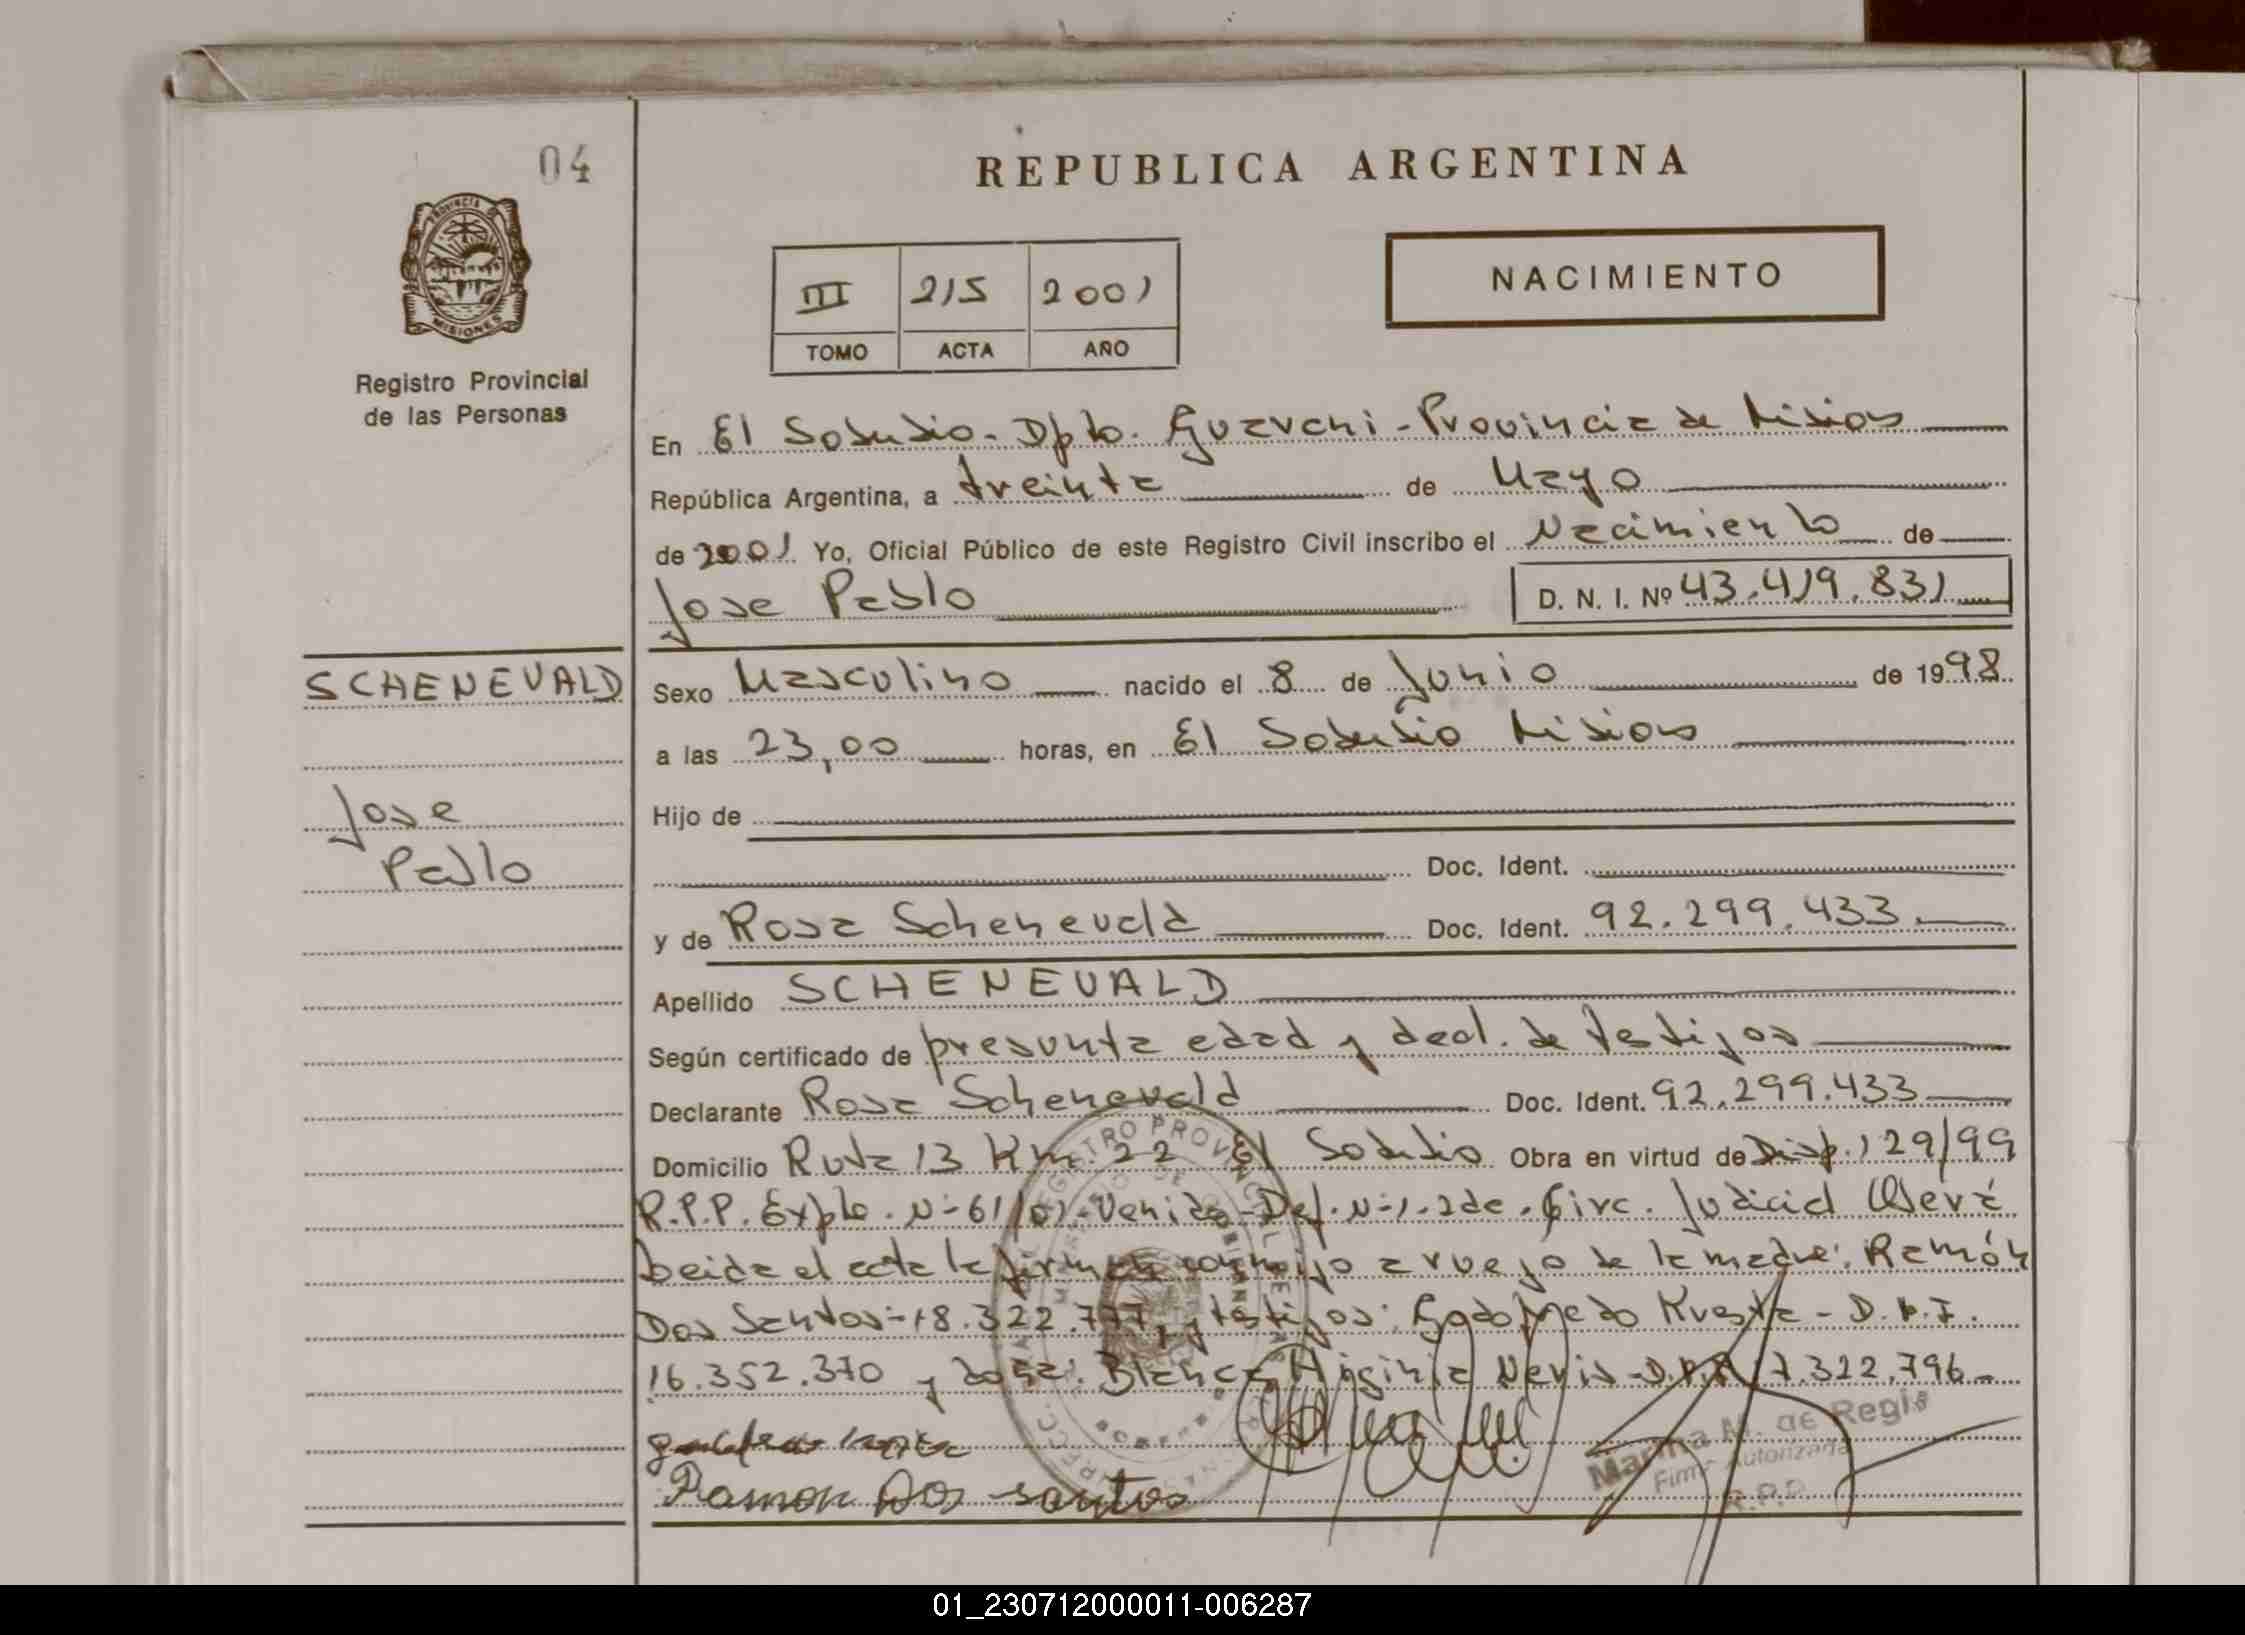 04
REPUBLICA ARGENTINA
PROVINCIA
MISIONES
Registro Provincial
de las Personas
III 215 2001
TOMO ACTA AÑO
NACIMIENTO
En El Soberbio - Dpto. Guarani - Provincia de Misiones
República Argentina, a treinta de Mayo
de 2001 Yo, Oficial Público de este Registro Civil inscribo el Nacimiento de
Jose Pablo D. N. I. Nº 43.419.831
SCHENEVALD
Jose
Pablo
Sexo Masculino nacido el 8 de Junio de 1998
a las 23,00 horas, en El Soberbio Misiones
Hijo de
Doc. Ident.
y de Rosa Schenevald Doc. Ident. 92.299.433
Apellido SCHENEVALD
Según certificado de presunta edad y decl. de testigos
Declarante Rosa Schenevald Doc. Ident. 92.299.433
Domicilio Ruta 13 Km. 22 El Soberbio Obra en virtud de Disp. 129/99
R.P.P. Expte. Nº 61/01 - Venida Def. Nº 1. 2da. Circ. Judicial Oberá
Leida el acta la firman conmigo a ruego de la madre: Ramón
Dos Santos - 18.322.777 y testigos: Godofredo - D.N.I.
16.352.370 y doña: Blanca Higinia Neris - D.N.I. 17.322.796 -
Ramon Dos santos
Marina M. de Regis
Firma Autorizada
R.P.P.
REGISTRO PROVINCIAL DE LAS PERSONAS
01_230712000011-006287